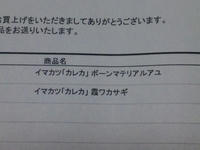 お買上げをいただきましてありがとうございます。
品をお送りいたします。
商品名
イマカツ「カレカ」 ボーンマテリアルアユ
イマカツ「カレカ」 霞ワカサギ